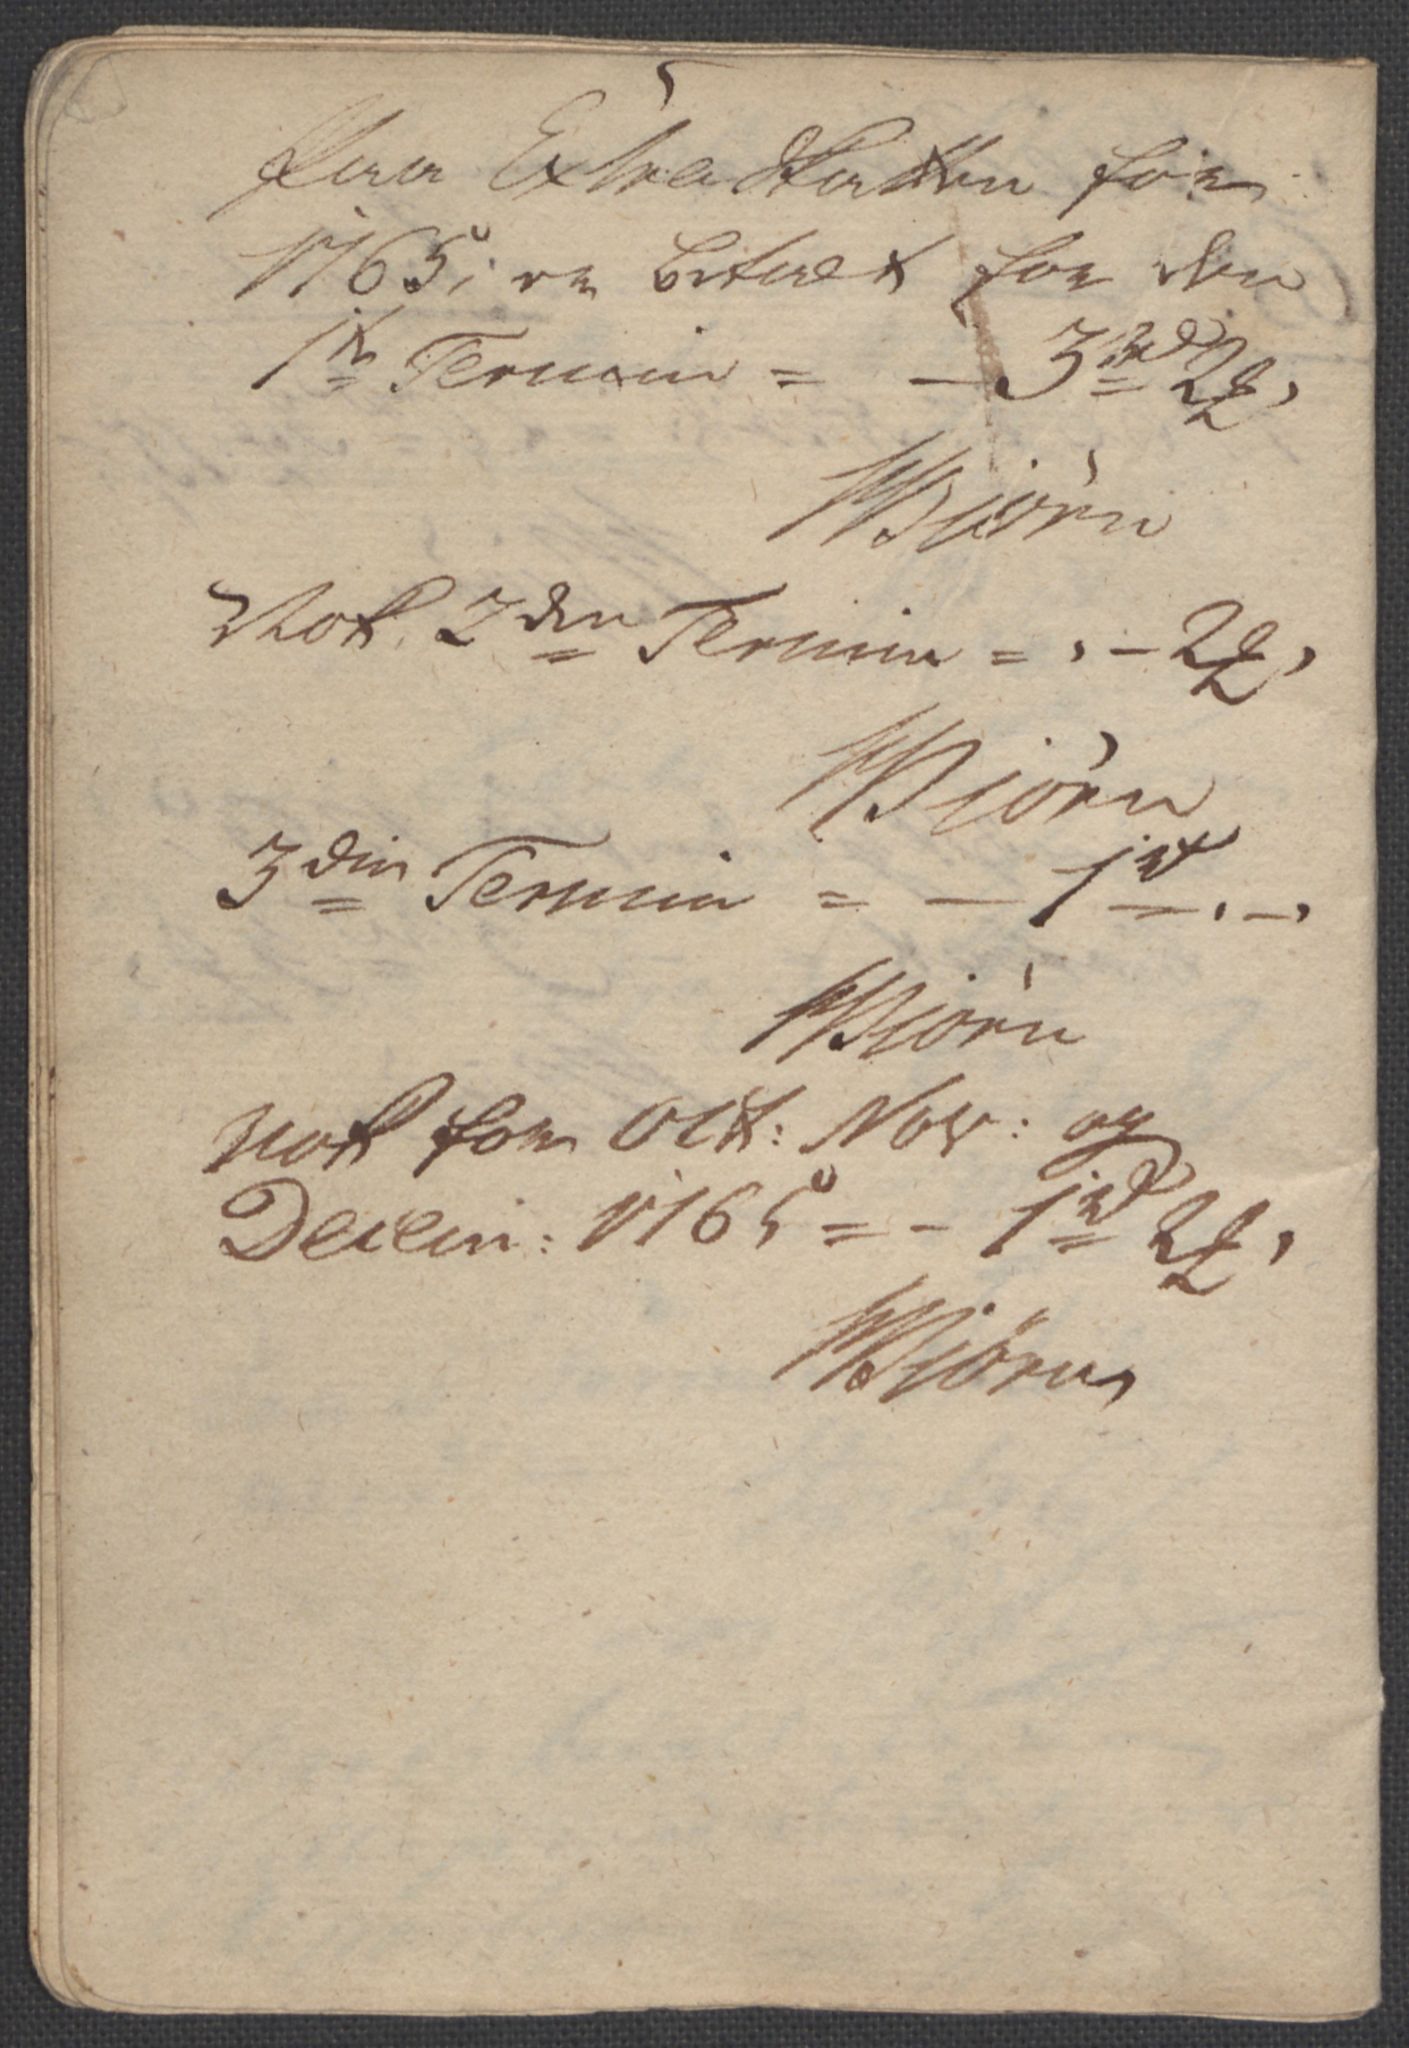 Paa Extra Skatten for
1765, er betalt for den
1te Termin = - 3rd 2
WBjörn
Nok 2den Termin = , - 2
WBjörn
3die Termin = - 1rd - , - ,
WBjörn
nok for Oct: Nov: og
Decem: 1765 = - 1rd 2
WBjörn